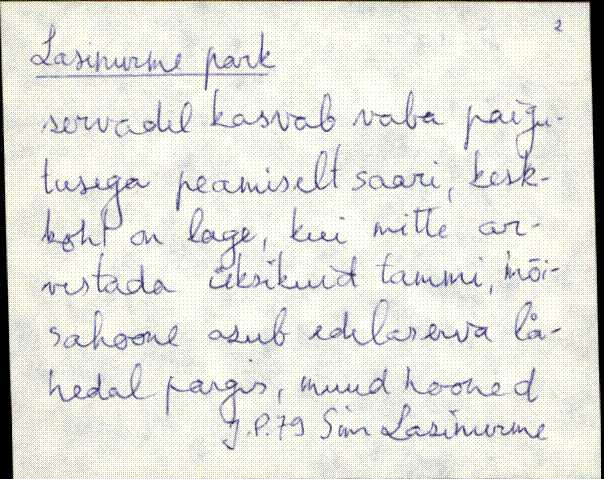 2
Lasinurme park
servadel kasvab vaba paigu-
tusega peamiselt saari, kesk-
koht on lage, kui mitte ar-
vestada üksikuid tammi, mõi-
sahoone asub edelaserva lä-
hedal pargis, muud hooned
J.P.79 Sim Lasinurme